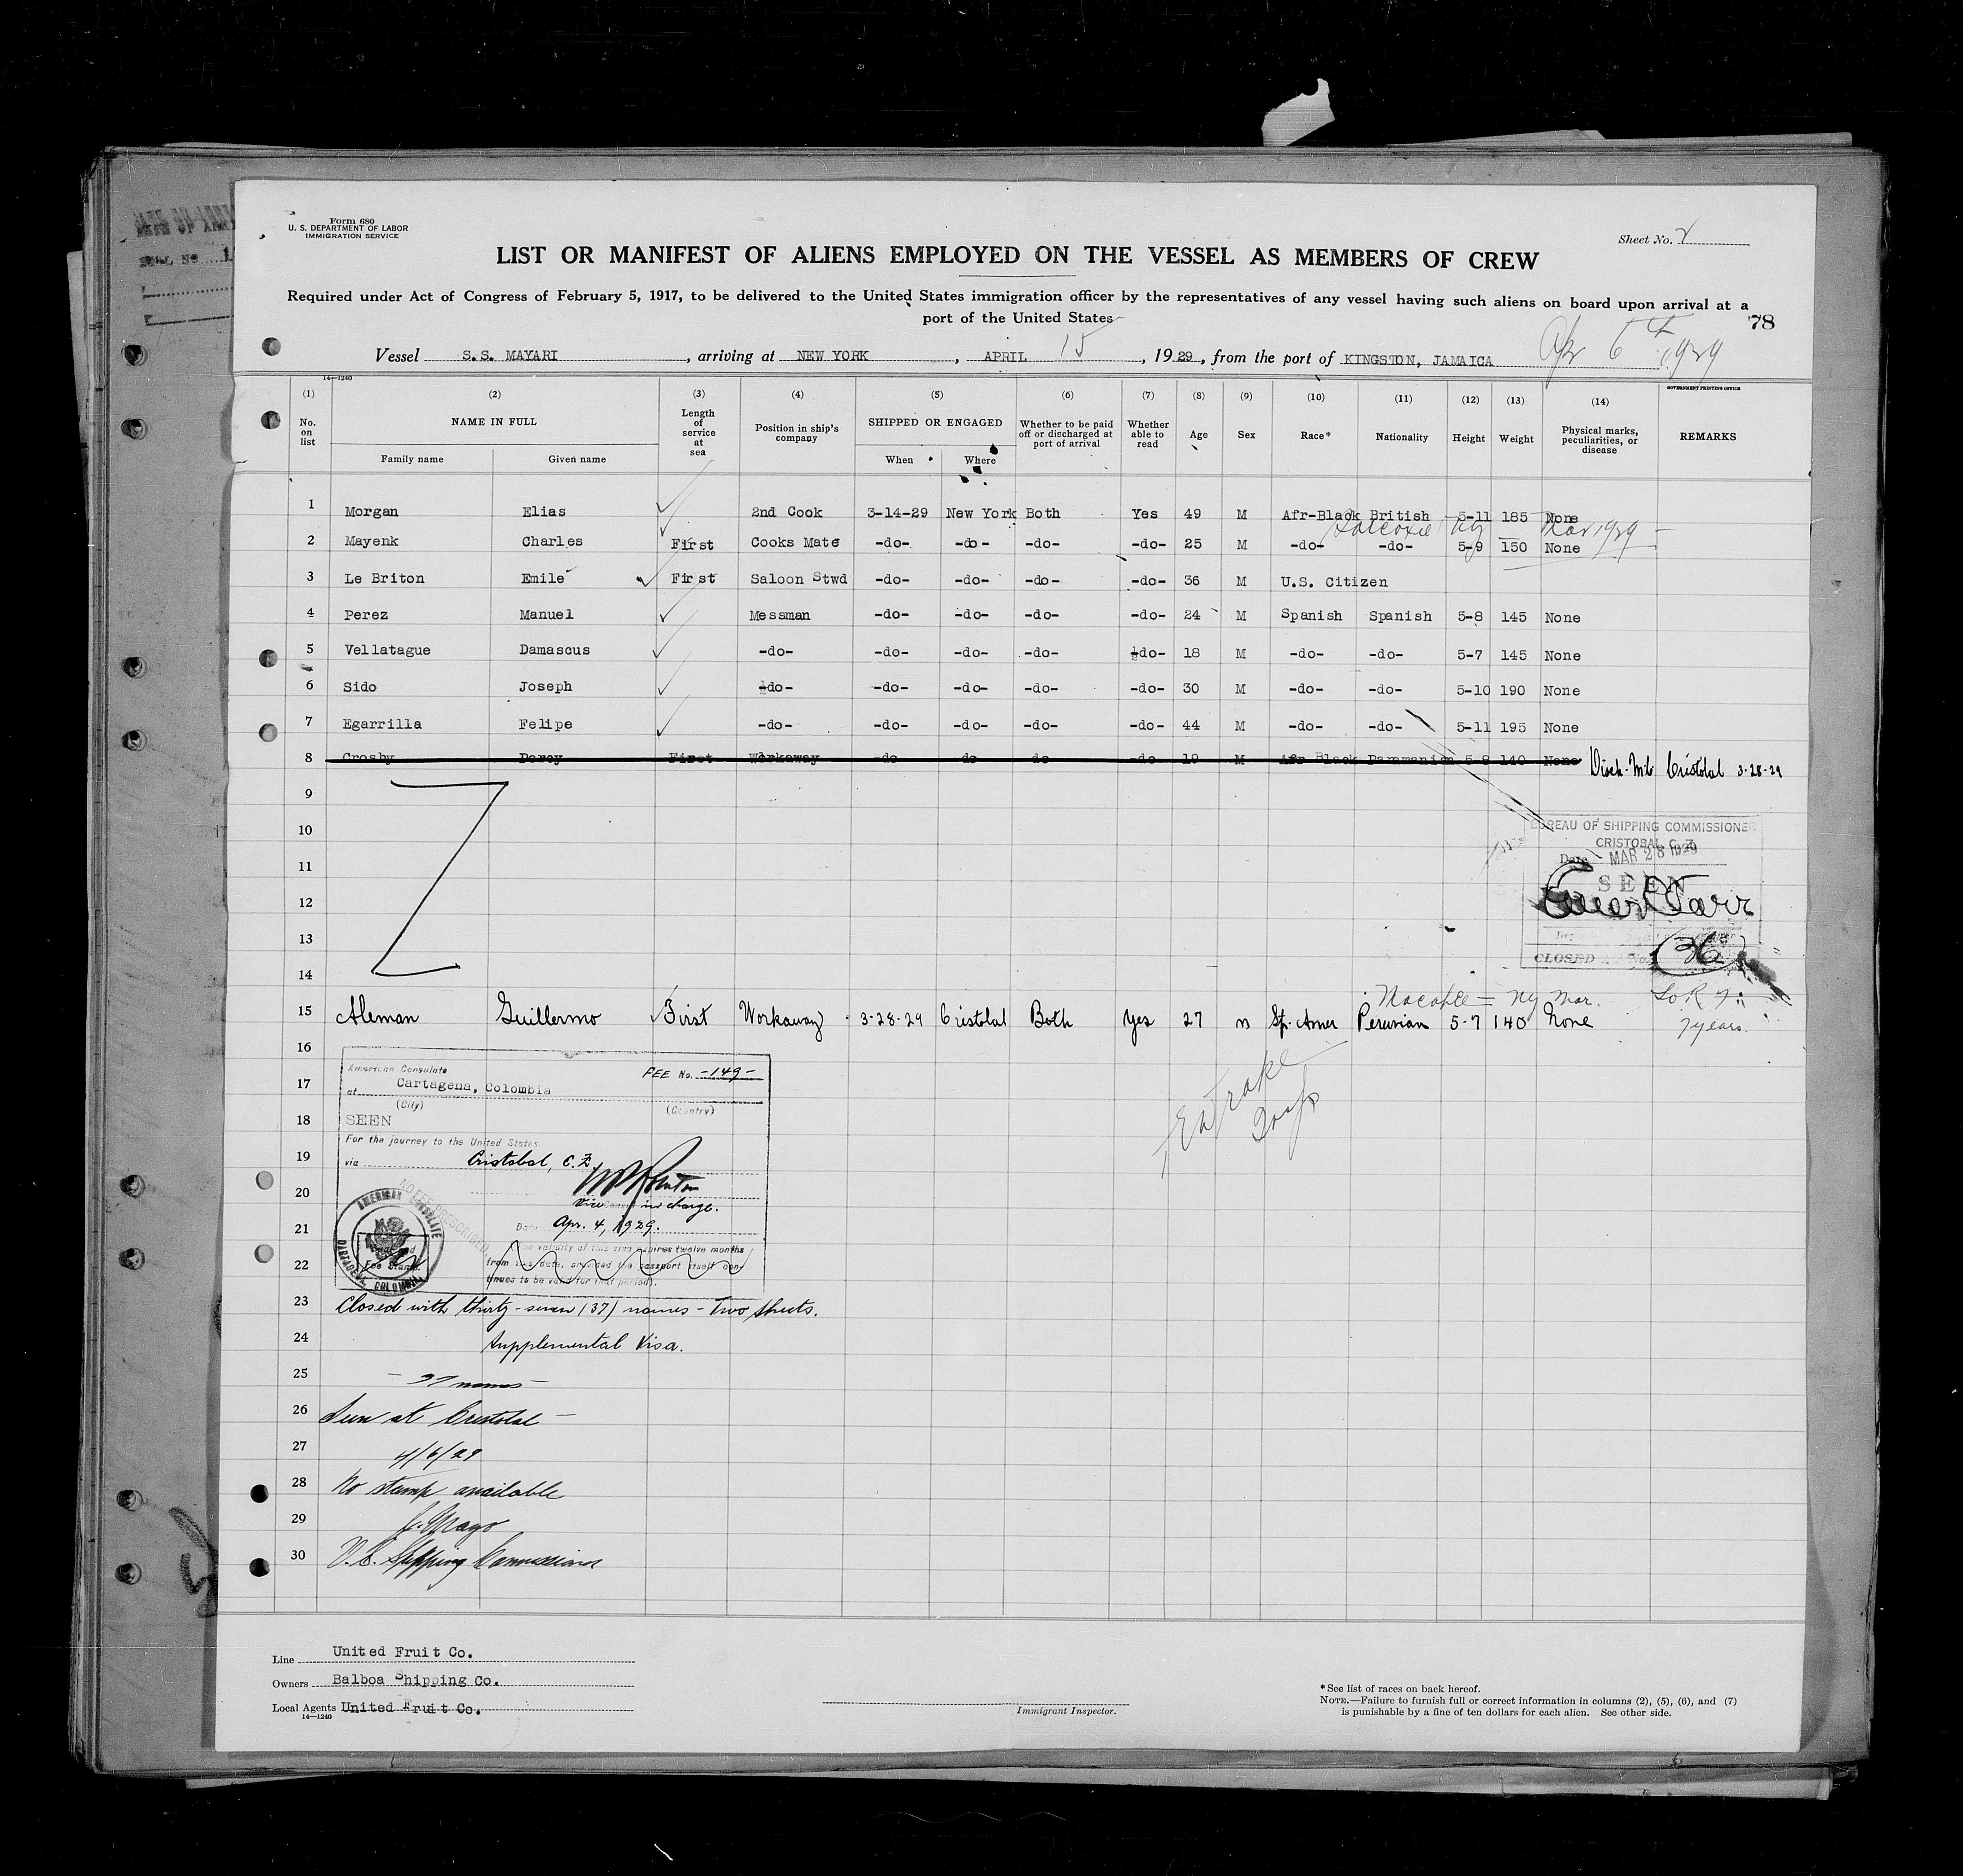 Form 680
U. S. DEPARTMENT OF LABOR
IMMIGRATION SERVICE
Sheet No. 2
LIST OR MANIFEST OF ALIENS EMPLOYED ON THE VESSEL AS MEMBERS OF CREW
Required under Act of Congress of February 5, 1917, to be delivered to the United States immigration officer by the representatives of any vessel having such aliens on board upon arrival at a
port of the United States
78
Vessel S.S. MAYARI, arriving at NEW YORK, APRIL 15, 1929, from the port of KINGSTON, JAMAICA Apr 6th 1929
14—1240
GOVERNMENT PRINTING OFFICE
(1) (2) (3) (4) (5) (6) (7) (8) (9) (10) (11) (12) (13) (14)
No. on list NAME IN FULL Length of service at sea Position in ship's company SHIPPED OR ENGAGED Whether to be paid off or discharged at port of arrival Whether able to read Age Sex Race* Nationality Height Weight Physical marks, peculiarities, or disease REMARKS
Family name Given name When Where
1 Morgan Elias 2nd Cook 3-14-29 New York Both Yes 49 M Afr-Black British 5-11 185 None
Mar 1929
2 Mayenk Charles First Cooks Mate -do- -do- -do- -do- 25 M -do- -do- 5-9 150 None
3 Le Briton Emile First Saloon Stwd -do- -do- -do- -do- 36 M U.S. Citizen
4 Perez Manuel Messman -do- -do- -do- -do- 24 M Spanish Spanish 5-8 145 None
5 Vellatague Damascus -do- -do- -do- -do- -do- 18 M -do- -do- 5-7 145 None
6 Sido Joseph -do- -do- -do- -do- -do- 30 M -do- -do- 5-10 190 None
7 Egarrilla Felipe -do- -do- -do- -do- -do- 44 M -do- -do- 5-11 195 None
8 Crosby Percy First Workaway -do- -do- -do- -do- 19 M Afr Black Panamanian 5-8 140 None Disch. Cristobal 3-28-29
9
10
BUREAU OF SHIPPING COMMISSIONER
CRISTOBAL C. Z.
Date MAR 28 1929
11
SEEN
12
13
CLOSED 36
14
NY Mar.
15 Aleman Guillermo First Workaway 3-28-29 Cristobal Both Yes 27 m Sp. Amer Peruvian 5-7 140 None 7 years
16
American Consulate FEE No. -149-
17 at Cartagena, Colombia
(City) (Country)
18 SEEN
For the journey to the United States.
19 via Cristobal, C.Z.
20
Vice in charge.
21 Date Apr. 4, 1929.
NO FEE PRESCRIBED
AMERICAN CONSULATE
CARTAGENA COLOMBIA
Fee Stamp
The validity of this visa expires twelve months
22 from this date, provided the passport itself con-
tinues to be valid for that period.
23 Closed with thirty-seven (37) names - Two sheets.
24 Supplemental Visa.
25 - 37 names -
26 Seen at Cristobal -
27 4/6/29
28 No stamp available
29
30 Shipping Commissioner
Line United Fruit Co.
Owners Balboa Shipping Co.
Local Agents United Fruit Co.
14—1240
Immigrant Inspector.
* See list of races on back hereof.
NOTE.—Failure to furnish full or correct information in columns (2), (5), (6), and (7)
is punishable by a fine of ten dollars for each alien. See other side.